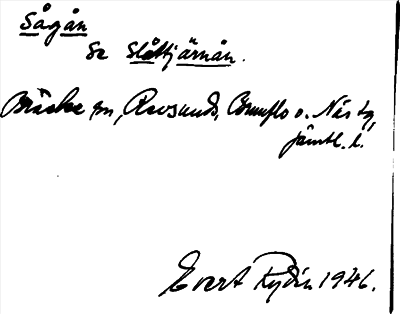 Sågån
Se Slåttjärnån.
Bräcke sn, Revsunds, Brunflo o. Näs tg,
Jämtl. l.
Evert Rydén 1946.